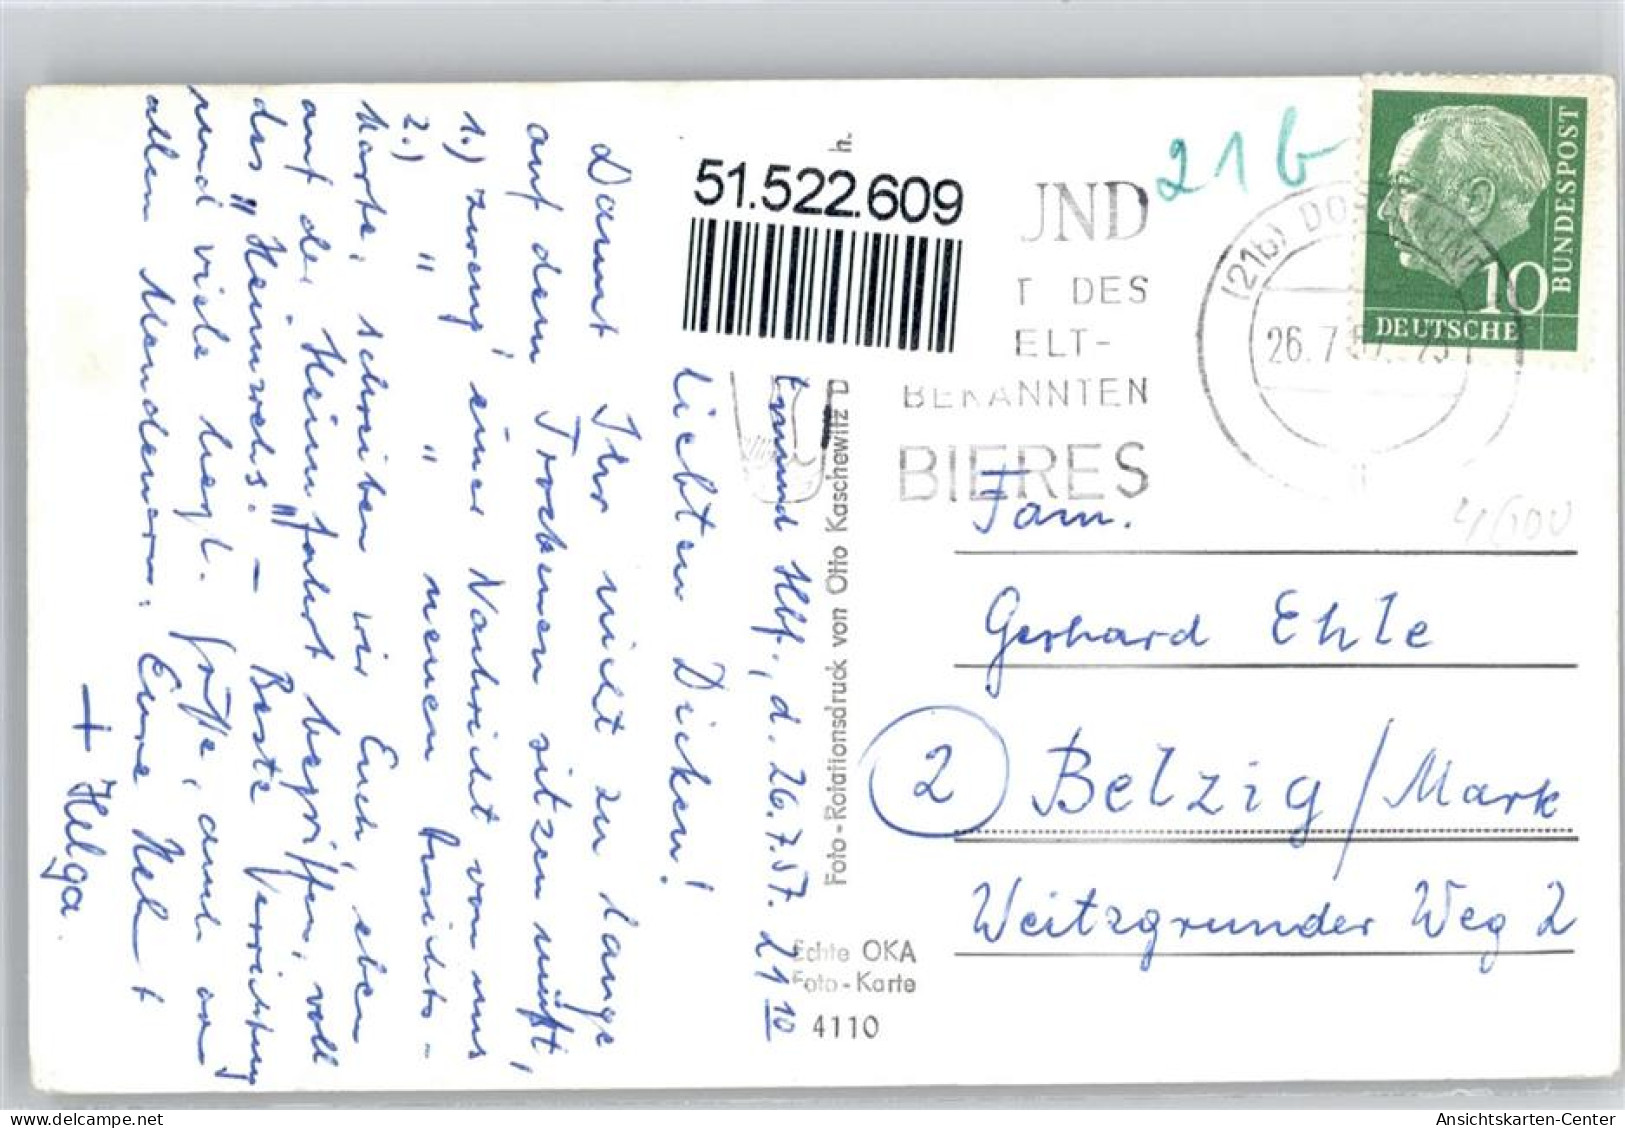 21 b
51.522.609
UND
T DES
ELT-
BEKANNTEN
BIERES
(21b) DORTMUND
26.7.57
BUNDESPOST
10
DEUTSCHE
h.
Foto-Rotationsdruck von Otto Kaschewitz D
Echte OKA
Foto-Karte
4110
tmund Hbf., d. 26.7.57. 21 10
Liebten Dicken!
Damit Ihr nicht zu lange
auf dem Trockenen sitzen müßt,
1.) zwecks einer Nachricht von uns
2.) " " neuen Ansichts-
karte, schreiben wir Euch, eben
auf der Heimfahrt begriffen, voll
des "Heimwehs". - Beste Verrichtung
und viele herzl. Grüße, auch an
allen Eure +
+ Helga.
Fam.
Gerhard Ehle
2 Belzig/Mark
Weitzgrunder Weg 2
Ansichtskarten-Center